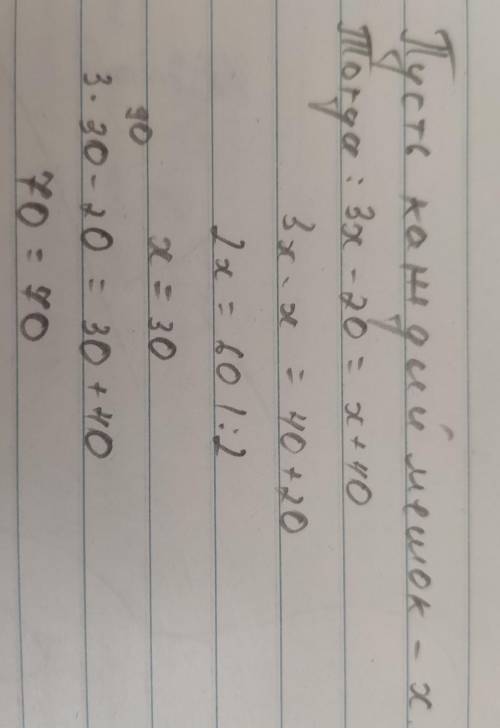 Пусть каждый мешок - х
Тогда: 3х - 20 = х + 40
3х - х = 40 + 20
2х = 60 | : 2
х = 30
90
3 · 30 - 20 = 30 + 40
70 = 70